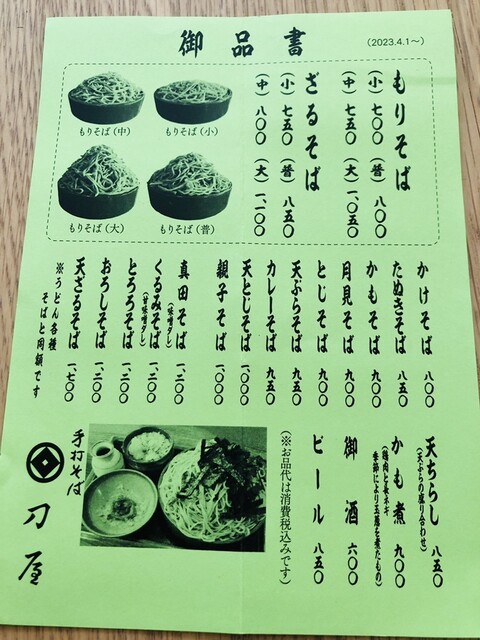 御品書
(2023.4.1～)
もりそば
(小) 七〇〇 (普) 八〇〇
(中) 七五〇 (大) 一、〇五〇
ざるそば
(小) 七五〇 (普) 八五〇
(中) 八〇〇 (大) 一、一〇〇
もりそば(中)
もりそば(小)
もりそば(大)
もりそば(普)
かけそば 八〇〇
たぬきそば 八五〇
かもそば 九五〇
月見そば 九〇〇
とじそば 九〇〇
天ぷらそば 九五〇
カレーそば 九五〇
天とじそば 一、〇〇〇
親子そば 一、〇〇〇
真田そば 一、二〇〇
(味噌ダレ)
くるみそば 一、二〇〇
(甘味噌ダレ)
とろろそば 一、二〇〇
おろしそば 一、二〇〇
天ざるそば 一、七〇〇
※うどん各種
そばと同額です
天ちらし 八五〇
(天ぷらの盛り合わせ)
かも煮 九〇〇
(鶏肉と長ネギ
季節により玉葱を煮たもの)
御酒 六〇〇
ビール 八五〇
(※お品代は消費税込みです)
手打そば
刀屋